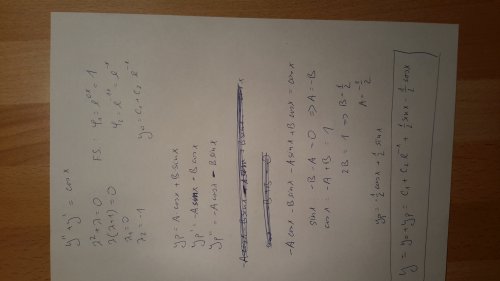 y'' + y' = cos x
λ² + λ = 0
λ(λ+1) = 0
λ₁ = 0
λ₂ = -1
F.S. φ₁ = e⁰ˣ = 1
φ₂ = e⁻¹ˣ = e⁻ˣ
y₀ = C₁ + C₂ e⁻ˣ
yp = A cos x + B sin x
yp' = -A sin x + B cos x
yp'' = -A cos x - B sin x
-A cos x - B sin x - A sin x + B cos x = cos x
sin x -B - A = 0 ⇒ A = -B
cos x = -A + B = 1
2B = 1 ⇒ B = 1/2
A = -1/2
yp = -1/2 cos x + 1/2 sin x
y = y₀ + yp = C₁ + C₂ e⁻ˣ + 1/2 sin x - 1/2 cos x